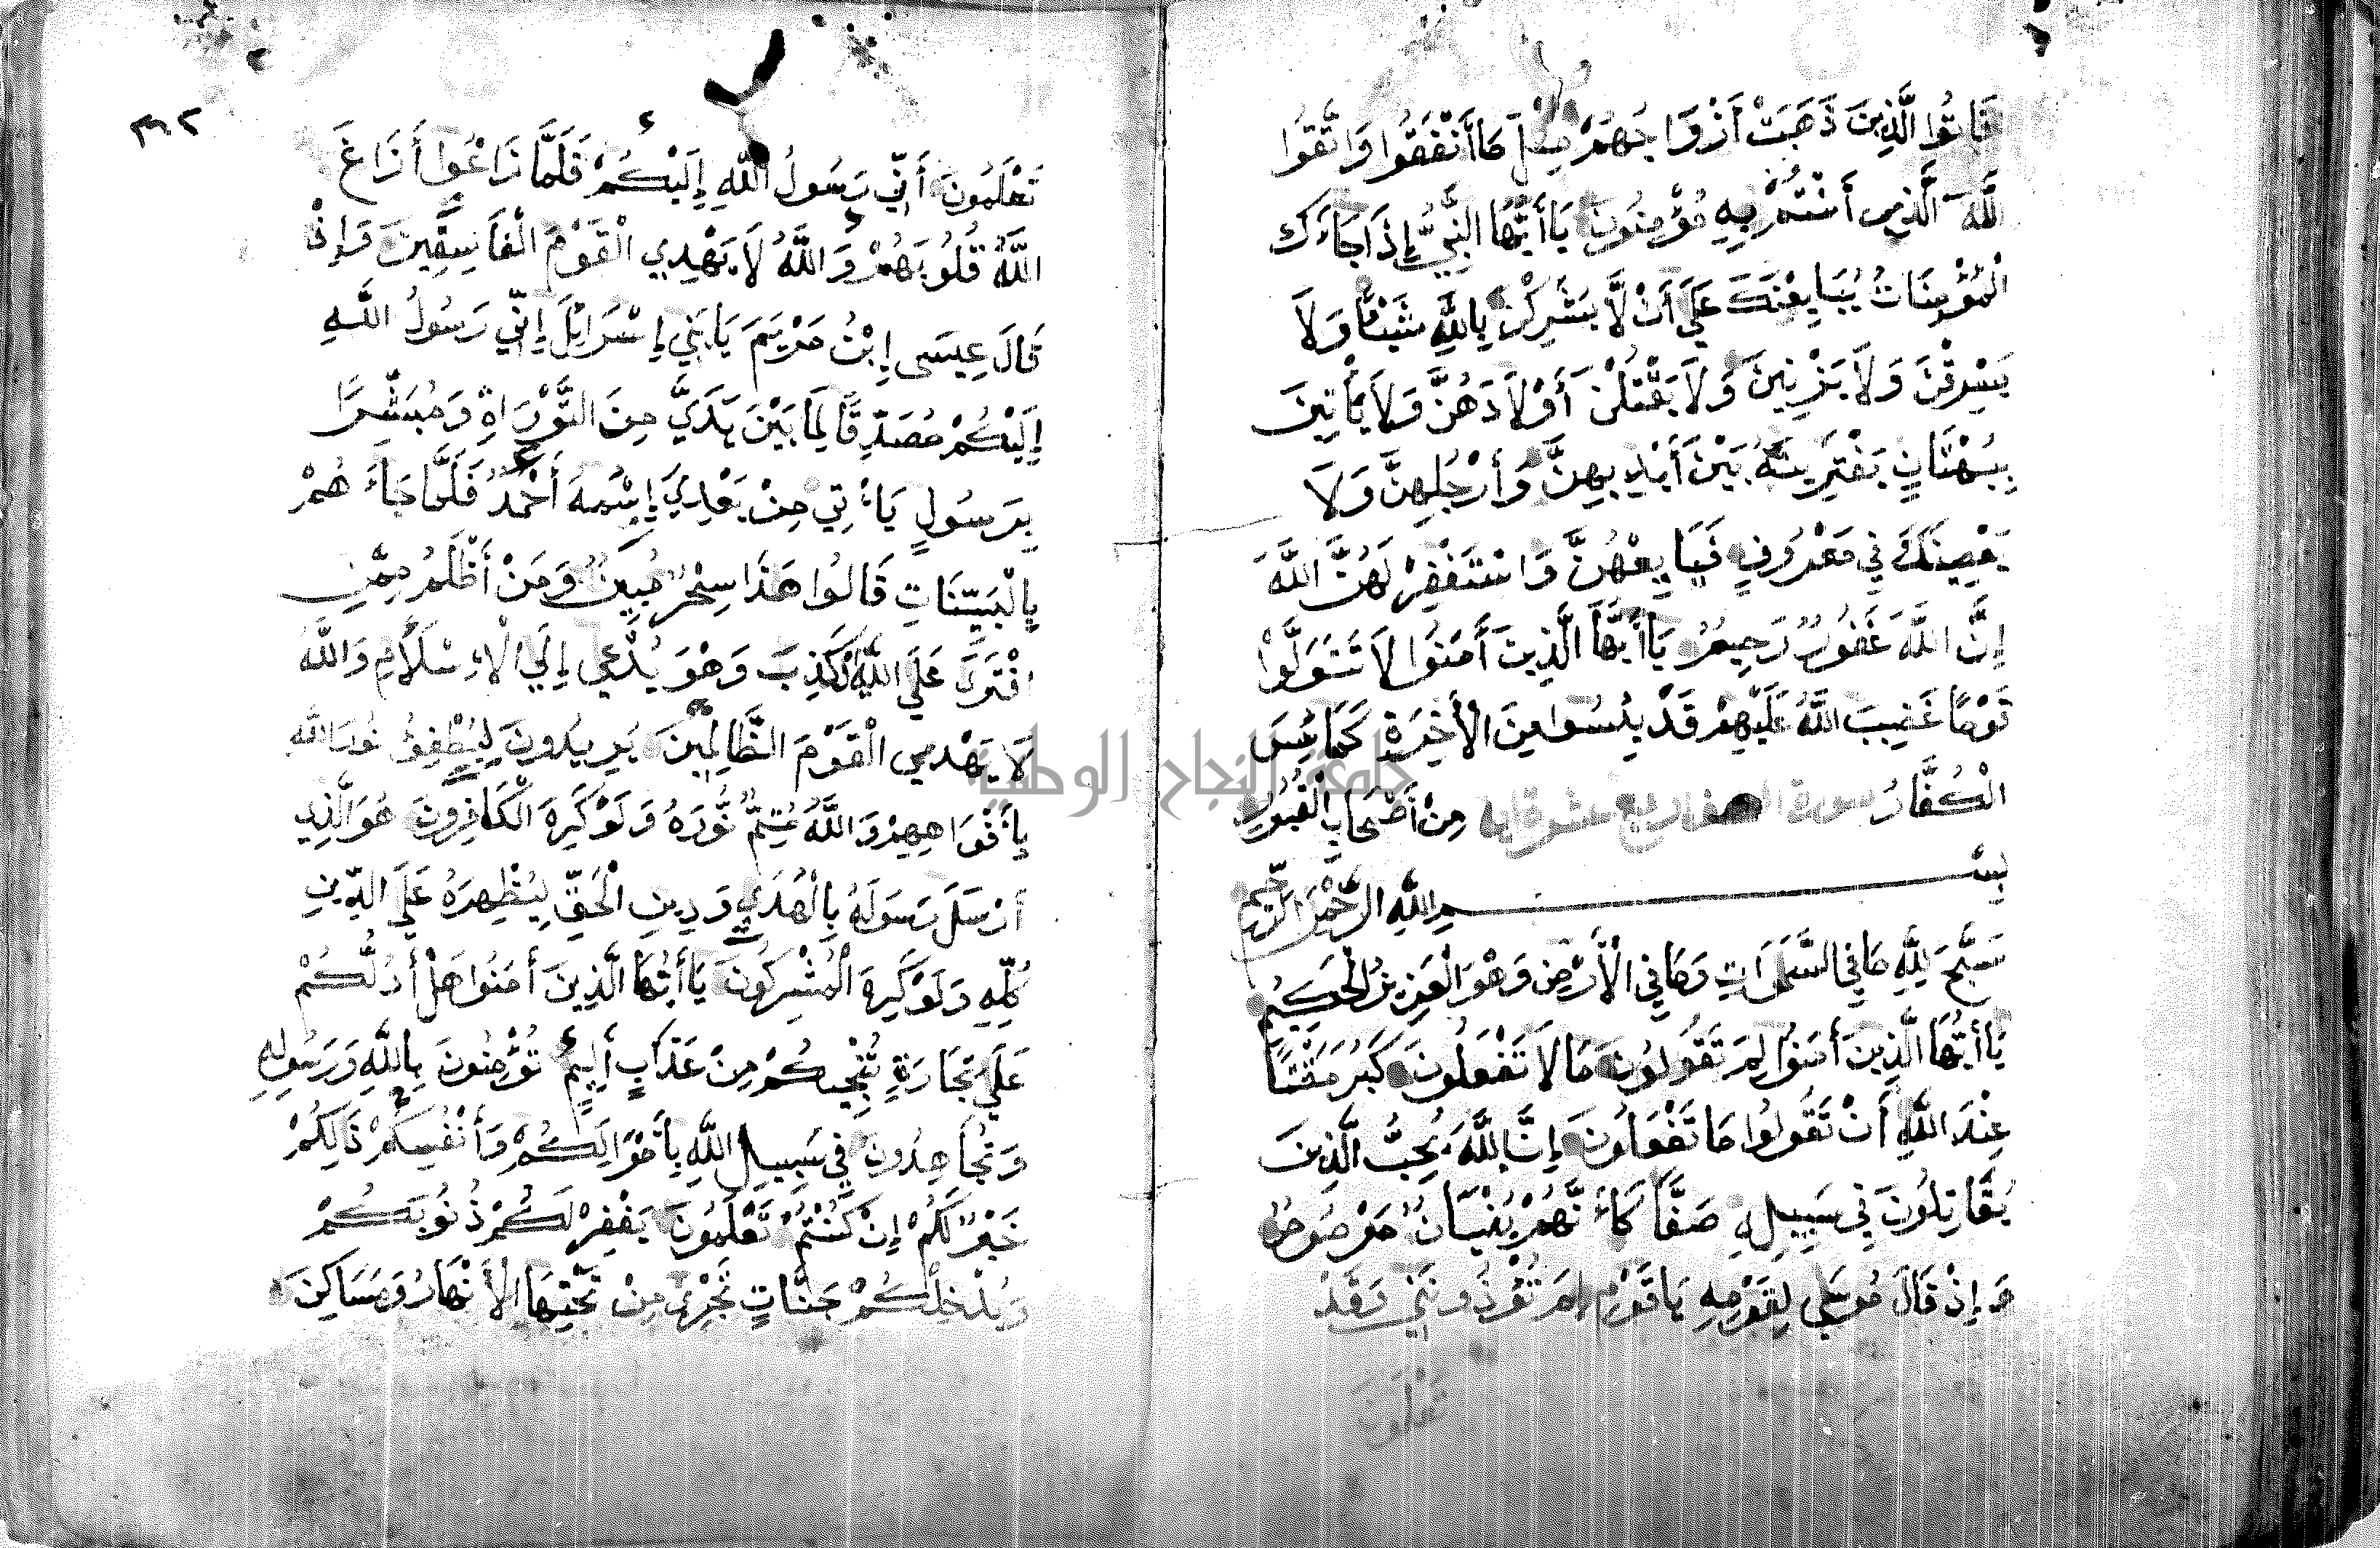 فَاتُوا الَّذِينَ ذَهَبَتْ أَزْوَاجُهُمْ مِثْلَ مَا أَنْفَقُوا وَاتَّقُوا
اللَّهَ الَّذِي أَنْتُمْ بِهِ مُؤْمِنُونَ يَا أَيُّهَا النَّبِيُّ إِذَا جَاءَكَ
الْمُؤْمِنَاتُ يُبَايِعْنَكَ عَلَي أَنْ لَّا يُشْرِكْنَ بِاللَّهِ شَيْئًا وَلَا
يَسْرِقْنَ وَلَا يَزْنِينَ وَلَا يَقْتُلْنَ أَوْلَادَهُنَّ وَلَا يَأْتِينَ
بِبُهْتَانٍ يَفْتَرِينَهُ بَيْنَ أَيْدِيهِنَّ وَأَرْجُلِهِنَّ وَلَا
يَعْصِينَكَ فِي مَعْرُوفٍ فَبَايِعْهُنَّ وَاسْتَغْفِرْ لَهُنَّ اللَّهَ
إِنَّ اللَّهَ غَفُورٌ رَحِيمٌ يَا أَيُّهَا الَّذِينَ أَمَنُوا لَا تَتَوَلَّوْا
قَوْمًا غَضِبَ اللَّهُ عَلَيْهِمْ قَدْ يَئِسُوا مِنَ الْأَخِرَةِ كَمَا يَئِسَ
الْكُفَّارُ سورة الصف اربع عشرة ايه مِنْ أَصْحَابِ الْقُبُورِ
بِسْمِ اللَّهِ الرَّحْمَنِ الرَّحِيمِ
سَبَّحَ لِلَّهِ مَا فِي السَّمَوَاتِ وَمَا فِي الْأَرْضِ وَهْوَ الْعَزِيزُ الْحَكِيمُ
يَا أَيُّهَا الَّذِينَ أَمَنُوا لِمَ تَقُولُونَ مَا لَا تَفْعَلُونَ كَبُرَ مَقْتًا
عِنْدَ اللَّهِ أَنْ تَقُولُوا مَا لَا تَفْعَلُونَ إِنَّ اللَّهَ يُحِبُّ الَّذِينَ
يُقَاتِلُونَ فِي سَبِيلِهِ صَفًّا كَأَنَّهُمْ بُنْيَانٌ مَرْصُوصٌ
وَإِذْ قَالَ مُوسَي لِقَوْمِهِ يَا قَوْمِ لِمَ تُؤْذُونَنِي وَقَدْ
تعلمون
٣٦٢
تَعْلَمُونَ أَنِّي رَسُولُ اللَّهِ إِلَيْكُمْ فَلَمَّا زَاغُوا أَزَاغَ
اللَّهُ قُلُوبَهُمْ وَاللَّهُ لَا يَهْدِي الْقَوْمَ الْفَاسِقِينَ وَإِذْ
قَالَ عِيسَى إِبْنُ مَرْيَمَ يَا بَنِي إِسْرَايِلَ إِنِّي رَسُولُ اللَّهِ
إِلَيْكُمْ مُصَدِّقًا لِمَا بَيْنَ يَدَيَّ مِنَ التَّوْرَاةِ وَمُبَشِّرًا
بِرَسُولٍ يَأْتِي مِنْ بَعْدِيَ إِسْمُهُ أَحْمَدُ فَلَمَّا جَاءَهُمْ
بِالْبَيِّنَاتِ قَالُوا هَذَا سِحْرٌ مُبِينٌ وَمَنْ أَظْلَمُ مِمَّنِ
افْتَرَى عَلَي اللَّهِ الْكَذِبَ وَهْوَ يُدْعَي إِلَي الْإِسْلَامِ وَاللَّهُ
لَا يَهْدِي الْقَوْمَ الظَّالِمِينَ يُرِيدُونَ لِيُطْفِئُ نُورَ اللَّهِ
بِأَفْوَاهِهِمْ وَاللَّهُ مُتِمٌّ نُورَهُ وَلَوْ كَرِهَ الْكَافِرُونَ هُوَ الَّذِي
أَرْسَلَ رَسُولَهُ بِالْهُدَي وَدِينِ الْحَقِّ لِيُظْهِرَهُ عَلَي الدِّينِ
كُلِّهِ وَلَوْ كَرِهَ الْمُشْرِكُونَ يَا أَيُّهَا الَّذِينَ أَمَنُوا هَلْ أَدُلُّكُمْ
عَلَي تِجَارَةٍ تُنْجِيكُمْ مِنْ عَذَابٍ أَلِيمٍ تُؤْمِنُونَ بِاللَّهِ وَرَسُولِهِ
وَتُجَاهِدُونَ فِي سَبِيلِ اللَّهِ بِأَمْوَالِكُمْ وَأَنْفُسِكُمْ ذَالِكُمْ
خَيْرٌ لَكُمْ إِنْ كُنْتُمْ تَعْلَمُونَ يَغْفِرْ لَكُمْ ذُنُوبَكُمْ
وَيُدْخِلْكُمْ جَنَّاتٍ تَجْرِي مِنْ تَحْتِهَا الْأَنْهَارُ وَمَسَاكِنَ
جامعة النجاح الوطنية